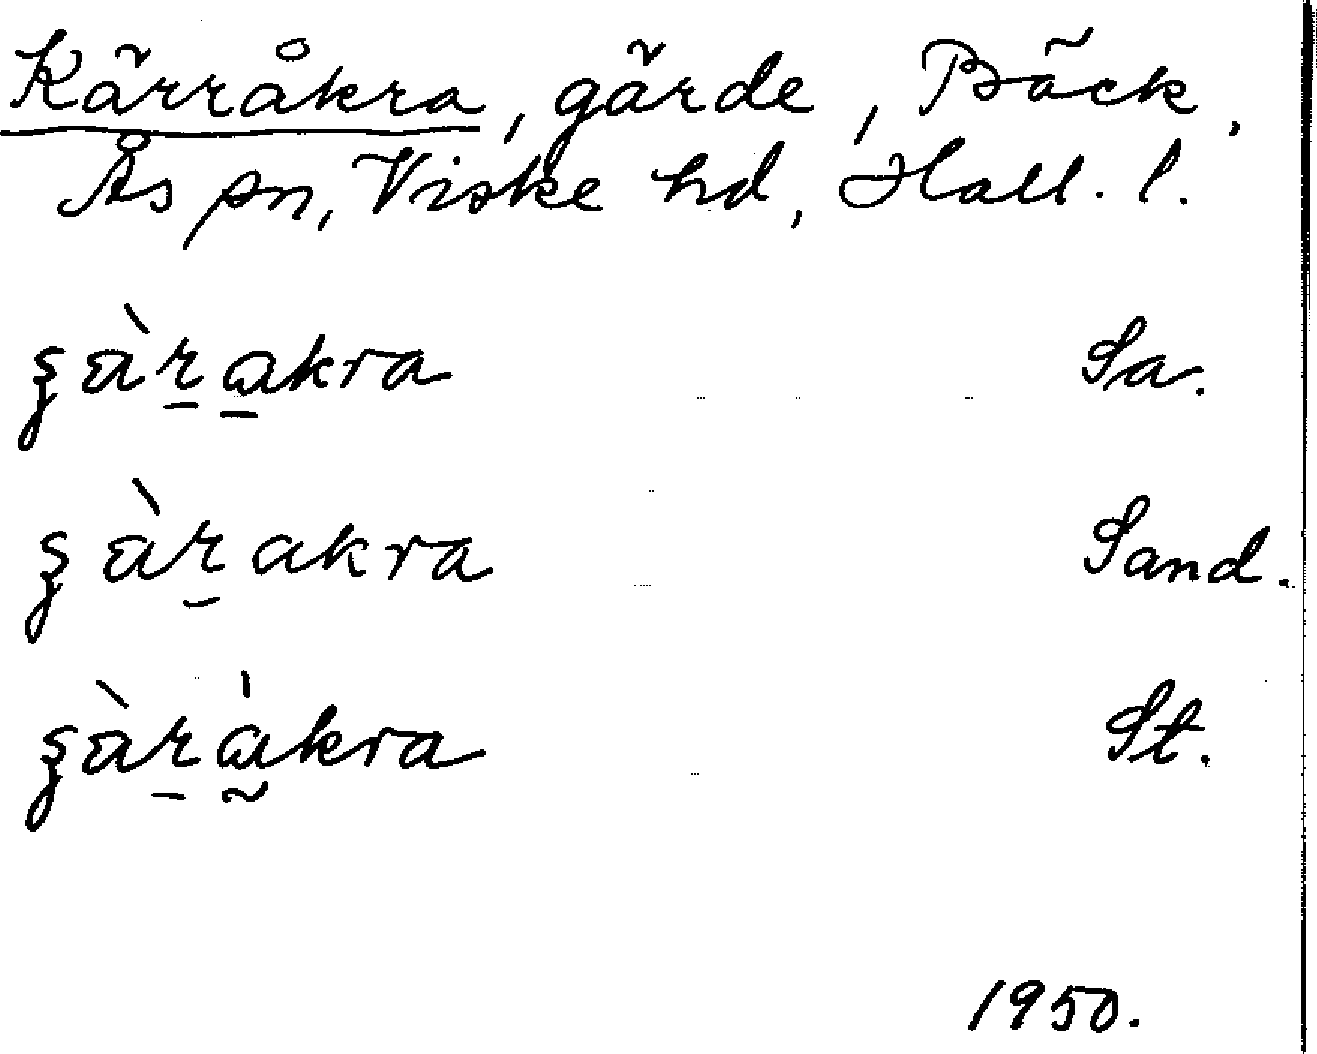 Kärråkra, gärde, Bäck,
Ås sn, Viske hd, Hall. l.
ʂàr̠a̠kra Sa.
ʂàr̠akra Sand.
ʂàr̠a̰̍kra St.
1950.